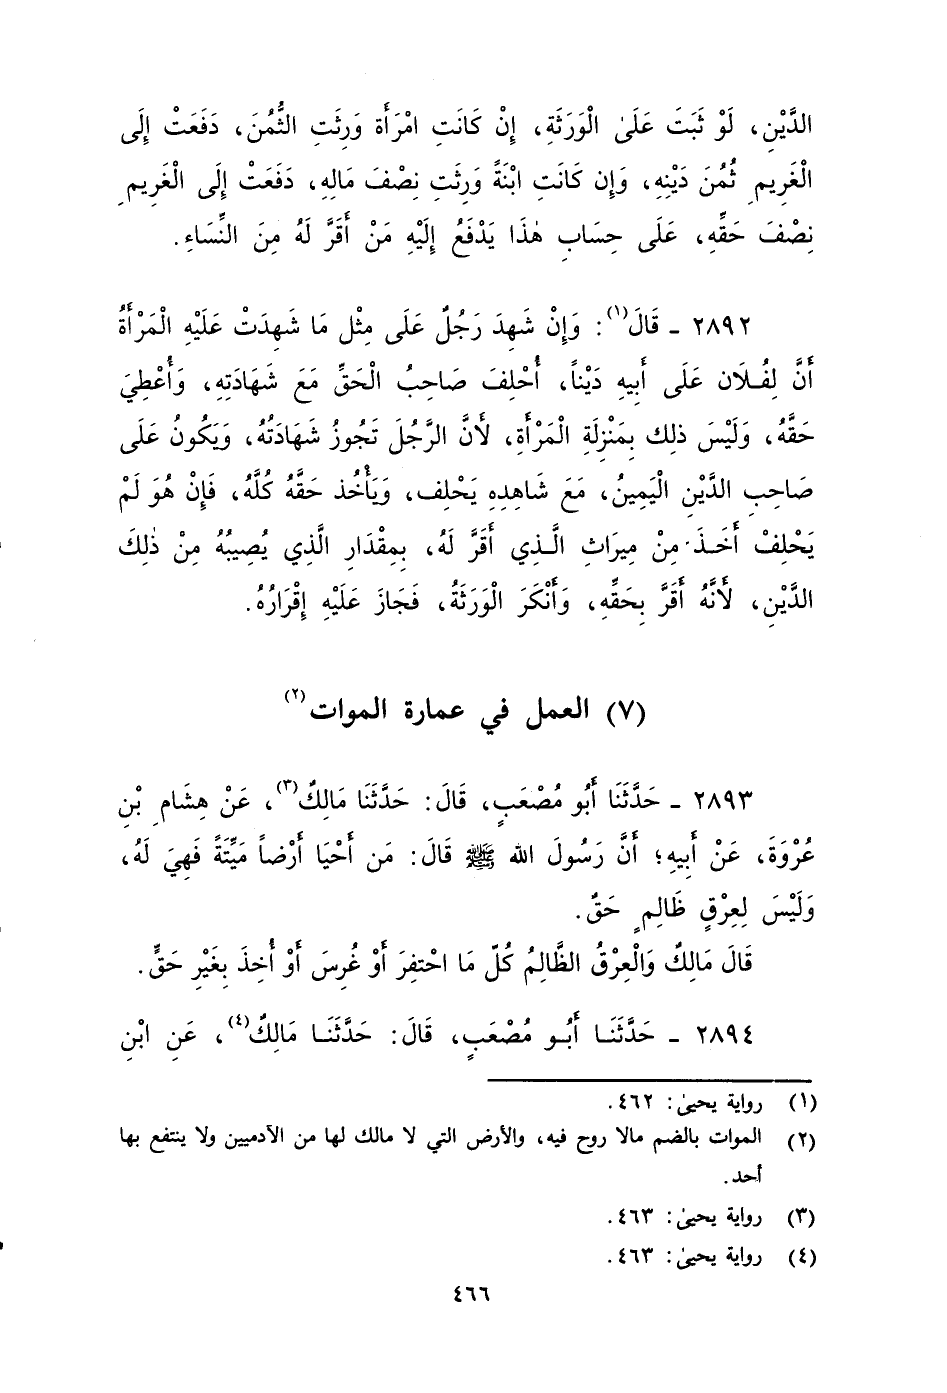 الدَّيْنِ، لَوْ ثَبَتَ عَلَىٰ الْوَرَثَةِ، إِنْ كَانَتِ امْرَأَة وَرِثَتِ الثُّمُنَ، دَفَعَتْ إِلَى
الْغَرِيمِ ثُمُنَ دَيْنِهِ، وَإِن كَانَتِ ابْنَةً وَرِثَتِ نِصْفَ مَالِهِ، دَفَعَتْ إِلَى الْغَرِيمِ
نِصْفَ حَقِّهِ، عَلَى حِسَابِ هٰذَا يَدْفَعُ إِلَيْهِ مَنْ أَقَرَّ لَهُ مِنَ النِّسَاءِ.
٢٨٩٢ ـ قَالَ(١): وَإِنْ شَهِدَ رَجُلٌ عَلَى مِثْلِ مَا شَهِدَتْ عَلَيْهِ الْمَرْأَةُ
أَنَّ لِفُلَان عَلَى أَبِيهِ دَيْناً، أُحْلِفَ صَاحِبُ الْحَقِّ مَعَ شَهَادَتِهِ، وَأُعْطِيَ
حَقَّهُ، وَلَيْسَ ذلِك بِمَنْزِلَةِ الْمَرْأَةِ، لأَنَّ الرَّجُلَ تَجُوزُ شَهَادَتُهُ، وَيَكُونُ عَلَى
صَاحِبِ الدَّيْنِ الْيَمِينُ، مَعَ شَاهِدِهِ يَحْلِف، وَيَأْخُذ حَقَّهُ كُلَّهُ، فَإِنْ هُوَ لَمْ
يَحْلِفْ أَخَذَ مِنْ مِيرَاثِ الَّذِي أَقَرَّ لَهُ، بِمِقْدَارِ الَّذِي يُصِيبُهُ مِنْ ذٰلِكَ
الدَّيْنِ، لأَنَّهُ أَقَرَّ بِحَقِّهِ، وَأَنْكَرَ الْوَرَثَةُ، فَجَازَ عَلَيْهِ إِقْرَارُهُ.
(٧) العمل في عمارة الموات(٢)
٢٨٩٣ ـ حَدَّثَنَا أَبُو مُصْعَبٍ، قَالَ: حَدَّثَنَا مَالِكٌ(٣)، عَنْ هِشَامِ بْنِ
عُرْوَةَ، عَنْ أَبِيهِ؛ أَنَّ رَسُولَ الله ﷺ قَالَ: مَن أَحْيَا أَرْضاً مَيِّتَةً فَهِيَ لَهُ،
وَلَيْسَ لِعِرْقٍ ظَالِمٍ حَقٌ.
قَالَ مَالِكٌ وَالْعِرْقُ الظَّالِمُ كُلّ مَا احْتفِرَ أَوْ غُرِسَ أَوْ أُخِذَ بِغَيْرِ حَقٍّ.
٢٨٩٤ ـ حَدَّثَنَا أَبُو مُصْعَبٍ، قَالَ: حَدَّثَنَا مَالِكٌ(٤)، عَنِ ابْنِ
(١) رواية يحيىٰ: ٤٦٢.
(٢) الموات بالضم مالا روح فيه، والأرض التي لا مالك لها من الآدميين ولا ينتفع بها
أحد.
(٣) رواية يحيىٰ: ٤٦٣.
(٤) رواية يحيىٰ: ٤٦٣.
٤٦٦